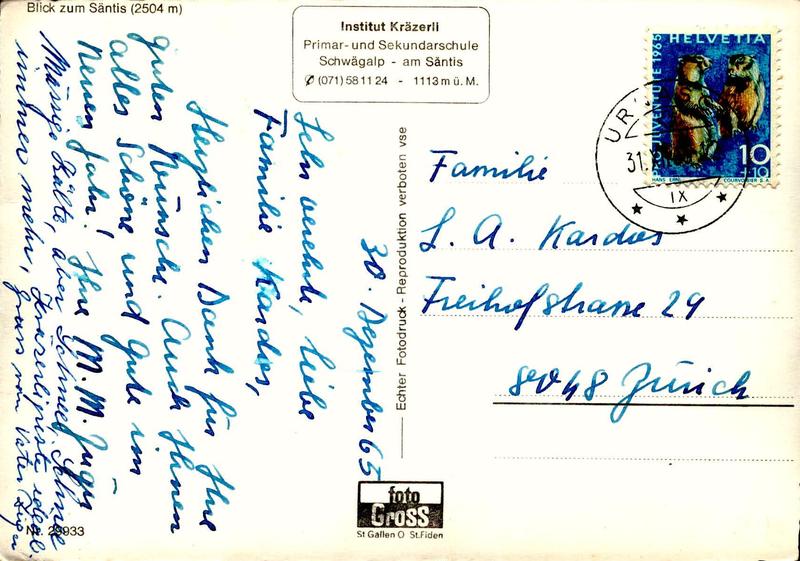 Blick zum Säntis (2504 m)
Institut Kräzerli
Primar- und Sekundarschule
Schwägalp - am Säntis
✆ (071) 58 11 24 - 1113 m ü. M.
HELVETIA
PRO JUVENTUTE 1965
10
+10
HANS ERNI
COURVOISIER S.A.
UR
31.
IX
30. Dezember 65
Sehr verehrte, liebe
Familie Kardos,
Herzlichen Dank für Ihre
guten Wünsche. Auch Ihnen
alles Schöne und Gute im
Neuen Jahr! Ihre M. M. Züger
Mässige Kälte, aber Schnee, Schnee
immer mehr,
Gruss von Vater Züger
Echter Fotodruck - Reproduktion verboten vse
Familie
L. A. Kardos
Freihofstrasse 29
8048 Zürich
foto
Gross
St Gallen O St.Fiden
Nr. 29933